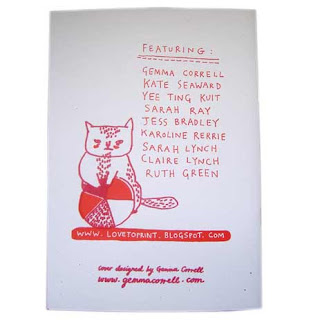 FEATURING:
GEMMA CORRELL
KATE SEAWARD
YEE TING KUIT
SARAH RAY
JESS BRADLEY
KAROLINE RERRIE
SARAH LYNCH
CLAIRE LYNCH
RUTH GREEN
WWW.LOVETOPRINT.BLOGSPOT.COM
cover designed by Gemma Correll
www.gemmacorrell.com